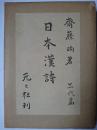 齋藤晌著
日本漢詩
元々社刊